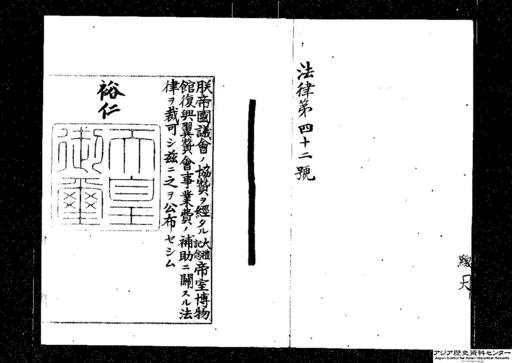 法律第四十二號
朕帝國議會ノ協贊ヲ經タル大禮記念帝室博物
館復興翼贊會事業費ノ補助ニ關スル法
律ヲ裁可シ茲ニ之ヲ公布セシム
裕仁
天皇御璽
アジア歴史資料センター
Japan Center for Asian Historical Records